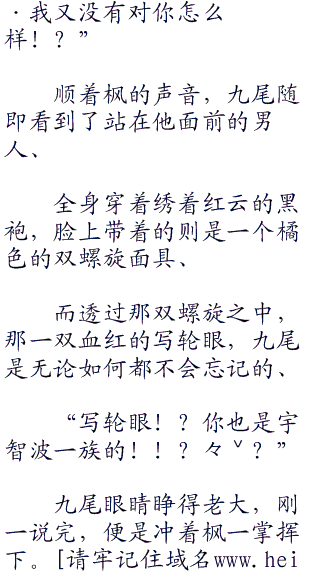 ·我又没有对你怎么
样！？”
顺着枫的声音，九尾随
即看到了站在他面前的男
人、
全身穿着绣着红云的黑
袍，脸上带着的则是一个橘
色的双螺旋面具、
而透过那双螺旋之中，
那一双血红的写轮眼，九尾
是无论如何都不会忘记的、
“写轮眼！？你也是宇
智波一族的！！？々ˇ？”
九尾眼睛睁得老大，刚
一说完，便是冲着枫一掌挥
下。[请牢记住域名www.hei